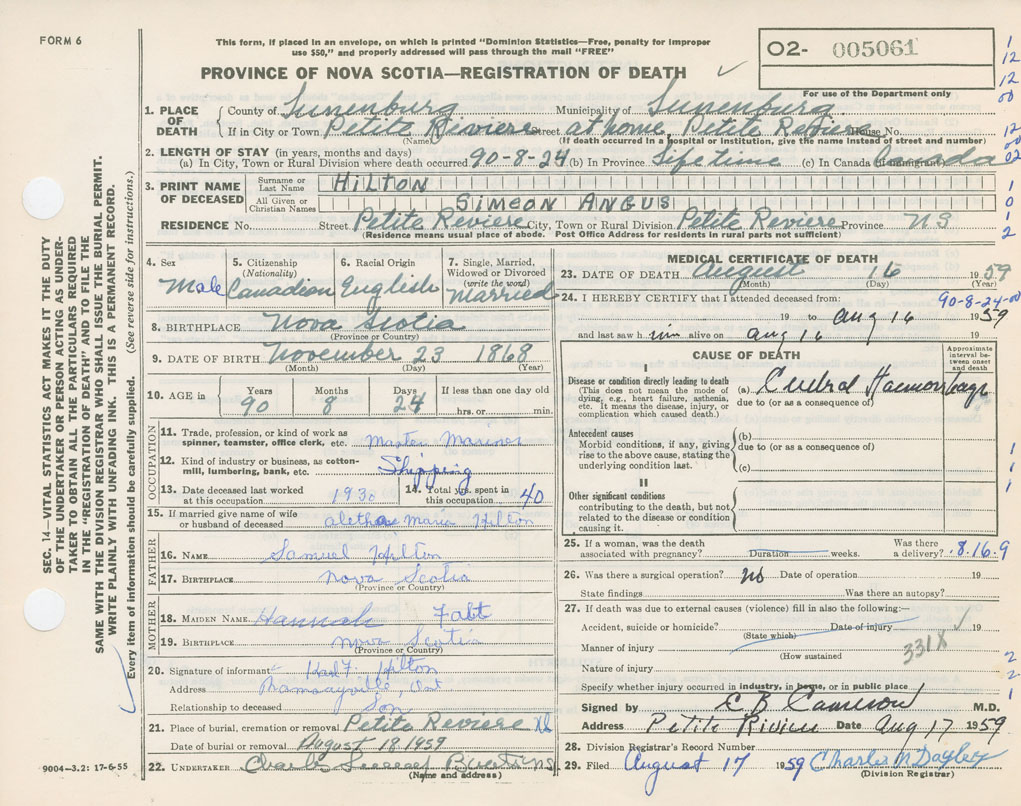 FORM 6
This form, if placed in an envelope, on which is printed "Dominion Statistics—Free, penalty for improper
use $50," and properly addressed will pass through the mail "FREE"
O2- 005061
For use of the Department only
PROVINCE OF NOVA SCOTIA—REGISTRATION OF DEATH
1. PLACE OF DEATH
County of Lunenburg Municipality of Lunenburg
If in City or Town Petite Riviere Street at home, Petite Reviere House No.
(Name) (If death occurred in a hospital or institution, give the name instead of street and number)
2. LENGTH OF STAY (in years, months and days)
(a) In City, Town or Rural Division where death occurred 90-8-24 (b) In Province Lifetime (c) In Canada if immigrant Canada
3. PRINT NAME OF DECEASED
Surname or Last Name HILTON
All Given or Christian Names SIMEON ANGUS
RESIDENCE No. Street Petite Reviere City, Town or Rural Division Petite Reviere Province NS
(Residence means usual place of abode. Post Office Address for residents in rural parts not sufficient)
4. Sex Male
5. Citizenship (Nationality) Canadian
6. Racial Origin English
7. Single, Married, Widowed or Divorced (write the word) Married
8. BIRTHPLACE Nova Scotia
(Province or Country)
9. DATE OF BIRTH November 23 1868
(Month) (Day) (Year)
10. AGE in Years 90 Months 8 Days 24 If less than one day old hrs. or min.
OCCUPATION
11. Trade, profession, or kind of work as spinner, teamster, office clerk, etc. Master Mariner
12. Kind of industry or business, as cotton-mill, lumbering, bank, etc. Shipping
13. Date deceased last worked at this occupation 1930
14. Total yrs. spent in this occupation 40
15. If married give name of wife or husband of deceased Maria Hilton
FATHER
16. NAME Samuel Hilton
17. BIRTHPLACE Nova Scotia
(Province or Country)
MOTHER
18. MAIDEN NAME Hannah
19. BIRTHPLACE Nova Scotia
(Province or Country)
20. Signature of informant Hilton
Address Ramsayville, Ont
Relationship to deceased Son
21. Place of burial, cremation or removal Petite Reviere
Date of burial or removal August 18, 1959
22. UNDERTAKER
(Name and address)
9004—3.2: 17-6-55
MEDICAL CERTIFICATE OF DEATH
23. DATE OF DEATH August 16 1959
(Month) (Day) (Year)
90-8-24-00
24. I HEREBY CERTIFY that I attended deceased from:
19 to Aug 16 1959
and last saw him alive on Aug 16 19
CAUSE OF DEATH
Approximate interval between onset and death
I
Disease or condition directly leading to death
(This does not mean the mode of dying, e.g., heart failure, asthenia, etc. It means the disease, injury, or complication which caused death.)
(a) Cerebral Haemorrhage
due to (or as a consequence of)
Antecedent causes
Morbid conditions, if any, giving rise to the above cause, stating the underlying condition last.
(b)
due to (or as a consequence of)
(c)
II
Other significant conditions
contributing to the death, but not related to the disease or condition causing it.
25. If a woman, was the death associated with pregnancy? Duration weeks. Was there a delivery? 8.16.9
26. Was there a surgical operation? No Date of operation 19
State findings Was there an autopsy?
27. If death was due to external causes (violence) fill in also the following:—
Accident, suicide or homicide? Date of injury 19
(State which)
Manner of injury 331X
(How sustained
Nature of injury
Specify whether injury occurred in industry, in home, or in public place
Signed by C B Cameron M.D.
Address Petite Riviere Date Aug 17 1959
28. Division Registrar's Record Number
29. Filed August 17 1959 Charles M
(Division Registrar)
SEC. 14—VITAL STATISTICS ACT MAKES IT THE DUTY
OF THE UNDERTAKER OR PERSON ACTING AS UNDER-
TAKER TO OBTAIN ALL THE PARTICULARS REQUIRED
IN THE "REGISTRATION OF DEATH" AND TO FILE THE
SAME WITH THE DIVISION REGISTRAR WHO SHALL ISSUE THE BURIAL PERMIT.
WRITE PLAINLY WITH UNFADING INK. THIS IS A PERMANENT RECORD.
Every item of information should be carefully supplied. (See reverse side for instructions.)
1
12
12
00
12
00
02
1
0
1
2
1
1
1
2
2
1